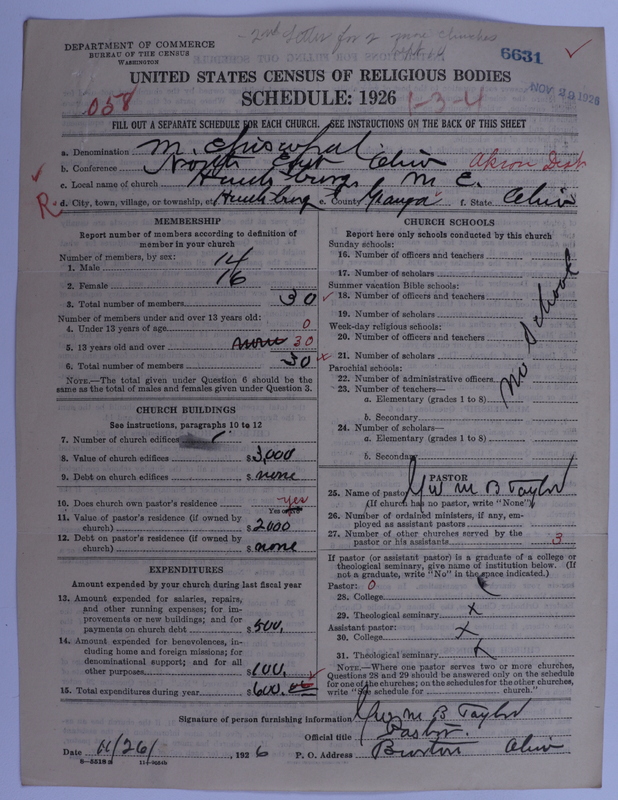 2nd letter for 2 more churches
DEPARTMENT OF COMMERCE
BUREAU OF THE CENSUS
WASHINGTON
6631
NOV 29 1926
UNITED STATES CENSUS OF RELIGIOUS BODIES
SCHEDULE: 1926
058
1-3-4
FILL OUT A SEPARATE SCHEDULE FOR EACH CHURCH. SEE INSTRUCTIONS ON THE BACK OF THIS SHEET
a. Denomination M. Episcopal
b. Conference North East Ohio Akron Dist
c. Local name of church Huntsburg M E.
R d. City, town, village, or township, etc Huntsburg e. County Geauga f. State Ohio
MEMBERSHIP
Report number of members according to definition of member in your church
Number of members, by sex:
1. Male 14
2. Female 16
3. Total number of members 30
Number of members under and over 13 years old:
4. Under 13 years of age 0
5. 13 years old and over none 30
6. Total number of members 30
NOTE.—The total given under Question 6 should be the same as the total of males and females given under Question 3.
CHURCH BUILDINGS
See instructions, paragraphs 10 to 12
7. Number of church edifices
8. Value of church edifices $ 3,000
9. Debt on church edifices $ none
10. Does church own pastor's residence yes
Yes or no
11. Value of pastor's residence (if owned by church) $ 2000
12. Debt on pastor's residence (if owned by church) $ none
EXPENDITURES
Amount expended by your church during last fiscal year
13. Amount expended for salaries, repairs, and other running expenses; for improvements or new buildings; and for payments on church debt $ 500.
14. Amount expended for benevolences, including home and foreign missions; for denominational support; and for all other purposes $ 100.
15. Total expenditures during year $ 600.00
CHURCH SCHOOLS
Report here only schools conducted by this church
Sunday schools:
16. Number of officers and teachers
17. Number of scholars
Summer vacation Bible schools:
18. Number of officers and teachers
19. Number of scholars
Week-day religious schools:
20. Number of officers and teachers
21. Number of scholars
Parochial schools:
22. Number of administrative officers
23. Number of teachers—
a. Elementary (grades 1 to 8)
b. Secondary
24. Number of scholars—
a. Elementary (grades 1 to 8)
b. Secondary
No School
PASTOR
25. Name of pastor Wm B Taylor
(If church has no pastor, write "None")
26. Number of ordained ministers, if any, employed as assistant pastors
27. Number of other churches served by the pastor or his assistants 3
If pastor (or assistant pastor) is a graduate of a college or theological seminary, give name of institution below. (If not a graduate, write "No" in the space indicated.)
Pastor: 0
28. College
29. Theological seminary x
Assistant pastor:
30. College x
31. Theological seminary x
NOTE.—Where one pastor serves two or more churches, Questions 28 and 29 should be answered only on the schedule for one of the churches; on the schedules for the other churches, write "See schedule for church."
Signature of person furnishing information Wm B Taylor
Official title Pastor.
Date 11/26/ , 1926 P. O. Address Burton Ohio
8-5518a 11-9054b